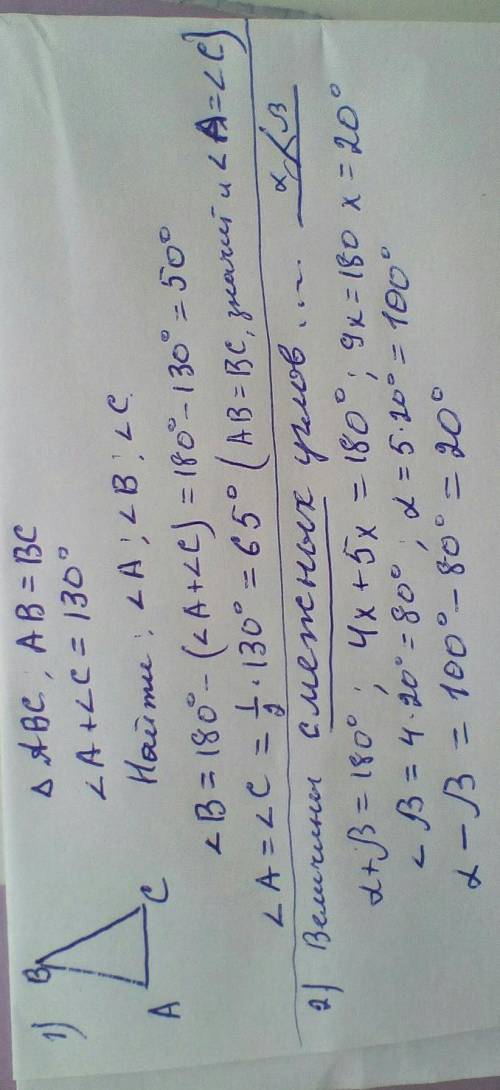 1) Δ ABC, AB = BC
∠A + ∠C = 130°
B
A C
Найти: ∠A; ∠B; ∠C.
∠B = 180° - (∠A + ∠C) = 180° - 130° = 50°
∠A = ∠C = 1/2 · 130° = 65° (AB = BC, значит и ∠A = ∠C)
2) Величины смежных углов ... α β
α + β = 180°; 4x + 5x = 180°; 9x = 180 x = 20°
∠β = 4·20° = 80°; α = 5·20° = 100°
α - β = 100° - 80° = 20°